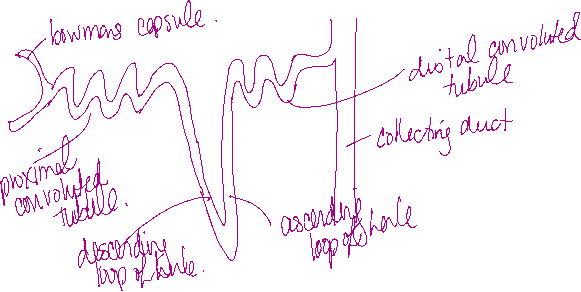 bowmans capsule.
distal convoluted
tubule
collecting duct
proximal
convoluted
tubule.
descending
loop of henle.
ascending
loop of henle